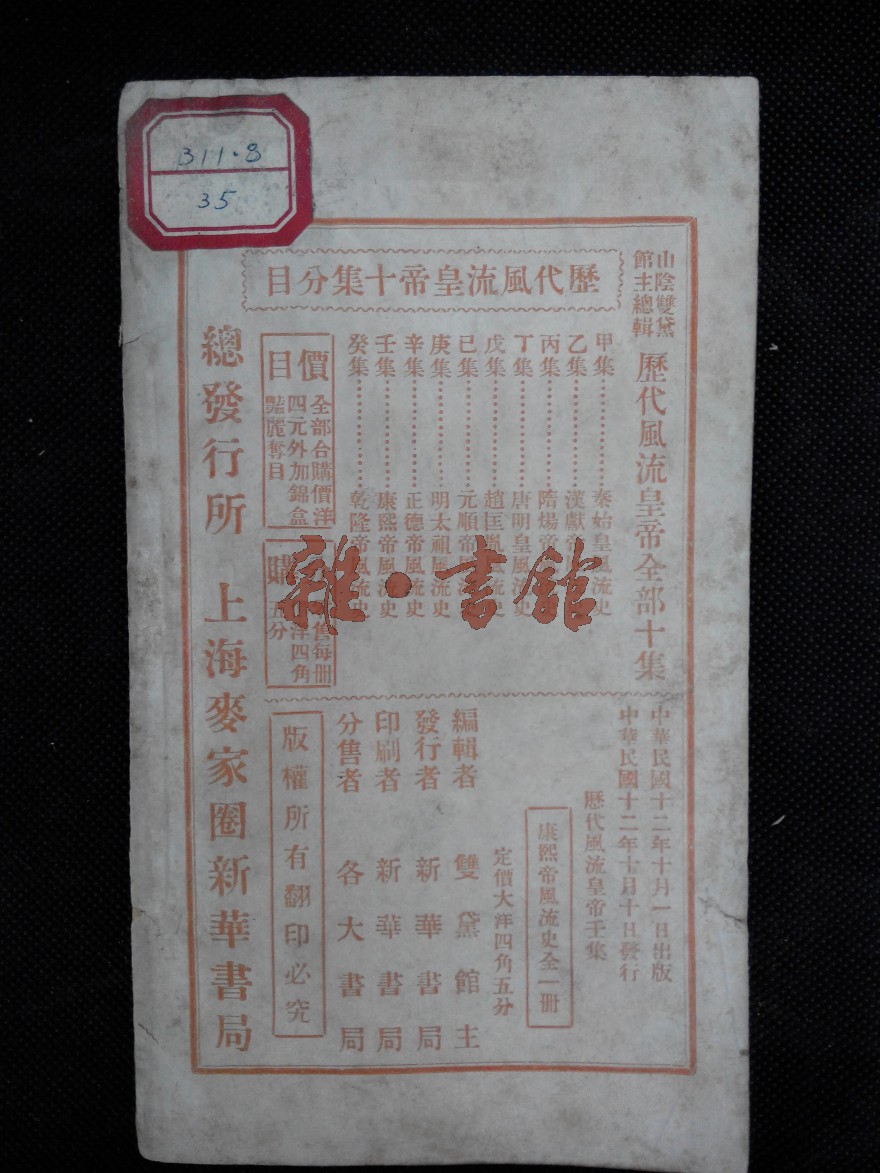 311.8
35
山陰雙黛
館主總輯
歷代風流皇帝全部十集
歷代風流皇帝十集分目
甲集……………秦始皇風流史
乙集……………漢獻帝
丙集……………隋煬帝
丁集……………唐明皇風流史
戊集……………趙匡胤 流史
已集……………元順帝
庚集……………明太祖風流史
辛集……………正德帝風流史
壬集……………康熙帝風流史
癸集……………乾隆帝風流史
價目
全部合購價洋
四元外加錦盒
豔麗奪目
購
售每冊
洋四角
五分
雜·書館
中華民國十二年十月一日出版
中華民國十二年十月十日發行
歷代風流皇帝壬集
康熙帝風流史全一冊
定價大洋四角五分
編輯者 雙黛館主
發行者 新華書局
印刷者 新華書局
分售者 各大書局
版權所有翻印必究
總發行所 上海麥家圈新華書局